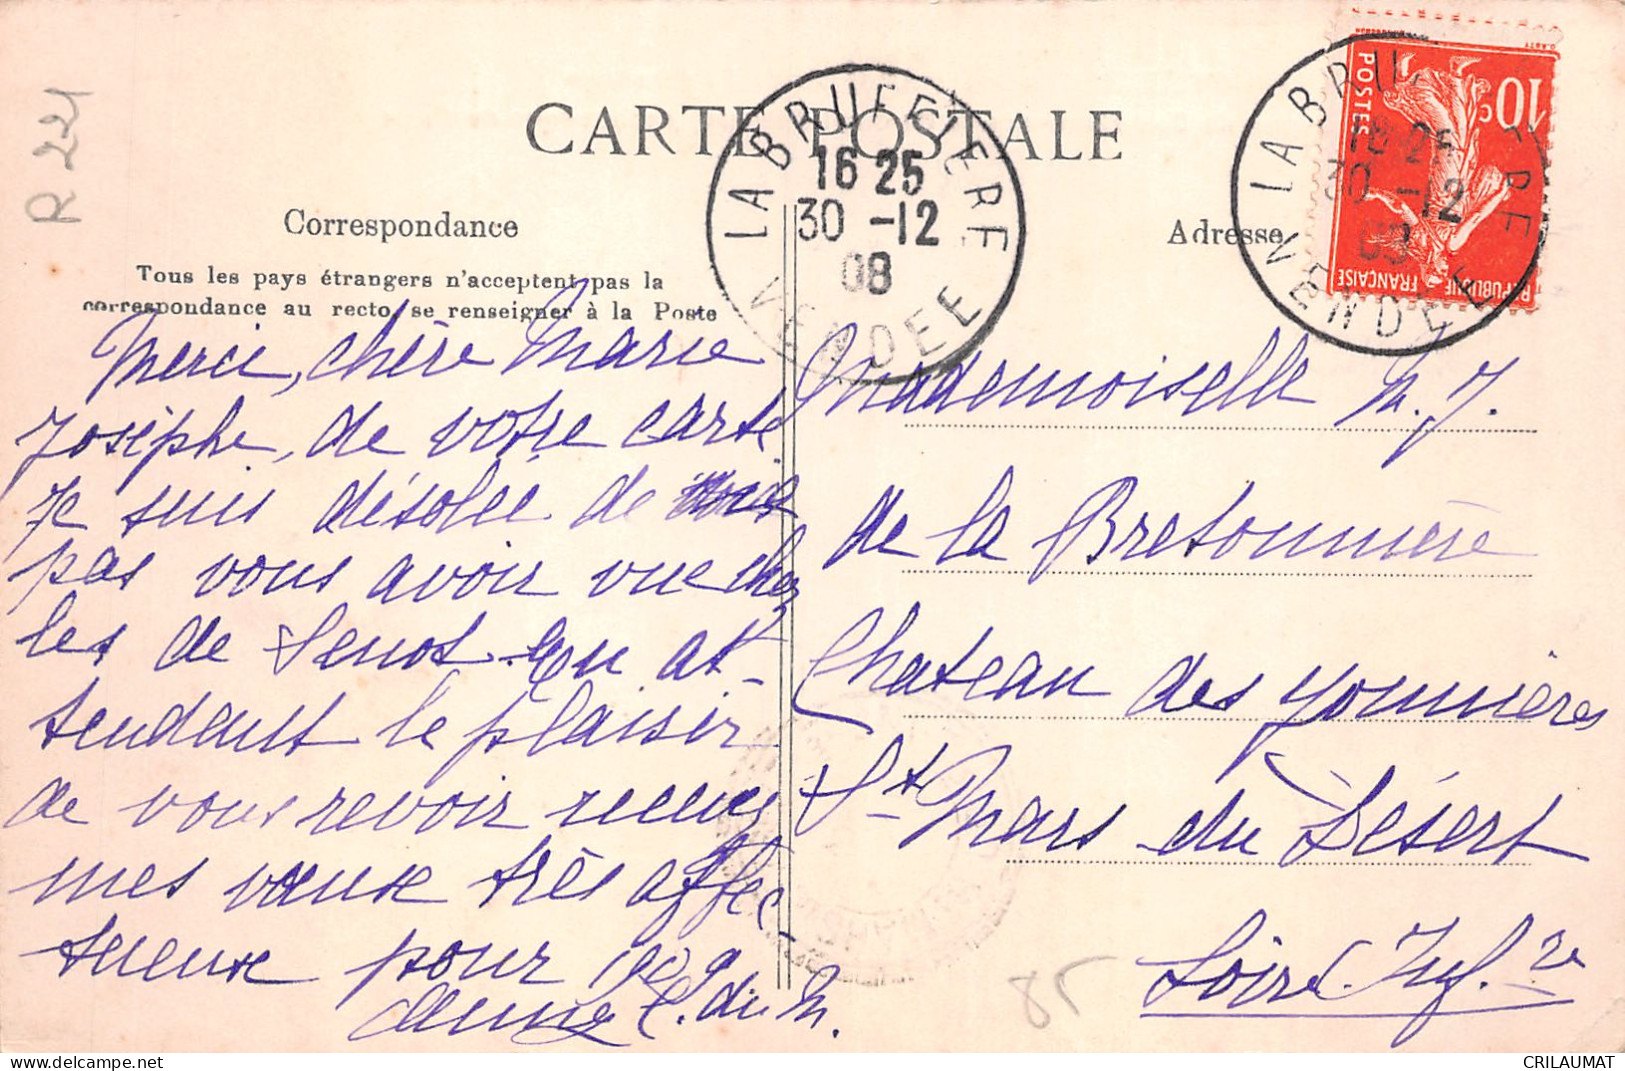 R 221
CARTE POSTALE
LA BRUFFIERE
16 25
30 -12
08
VENDEE
LA BRU
RE
16 25
30 -12
08
VENDEE
10c
POSTES
REPUBLIQUE FRANÇAISE
Correspondance
Tous les pays étrangers n'acceptent pas la
correspondance au recto, se renseigner à la Poste
Merci, chère Marie
Josèphe, de votre carte
Je suis désolée de
pas vous avoir vue chez
les de Senot. En at-
tendant le plaisir
de vous revoir recevez
mes vœux très affec-
tueux pour 1909
Anne C. du
Adresse
Mademoiselle M. J.
de la Bretonnière
Château des Yonnières
St Mars du Désert
Loire Infre
85
CRILAUMAT